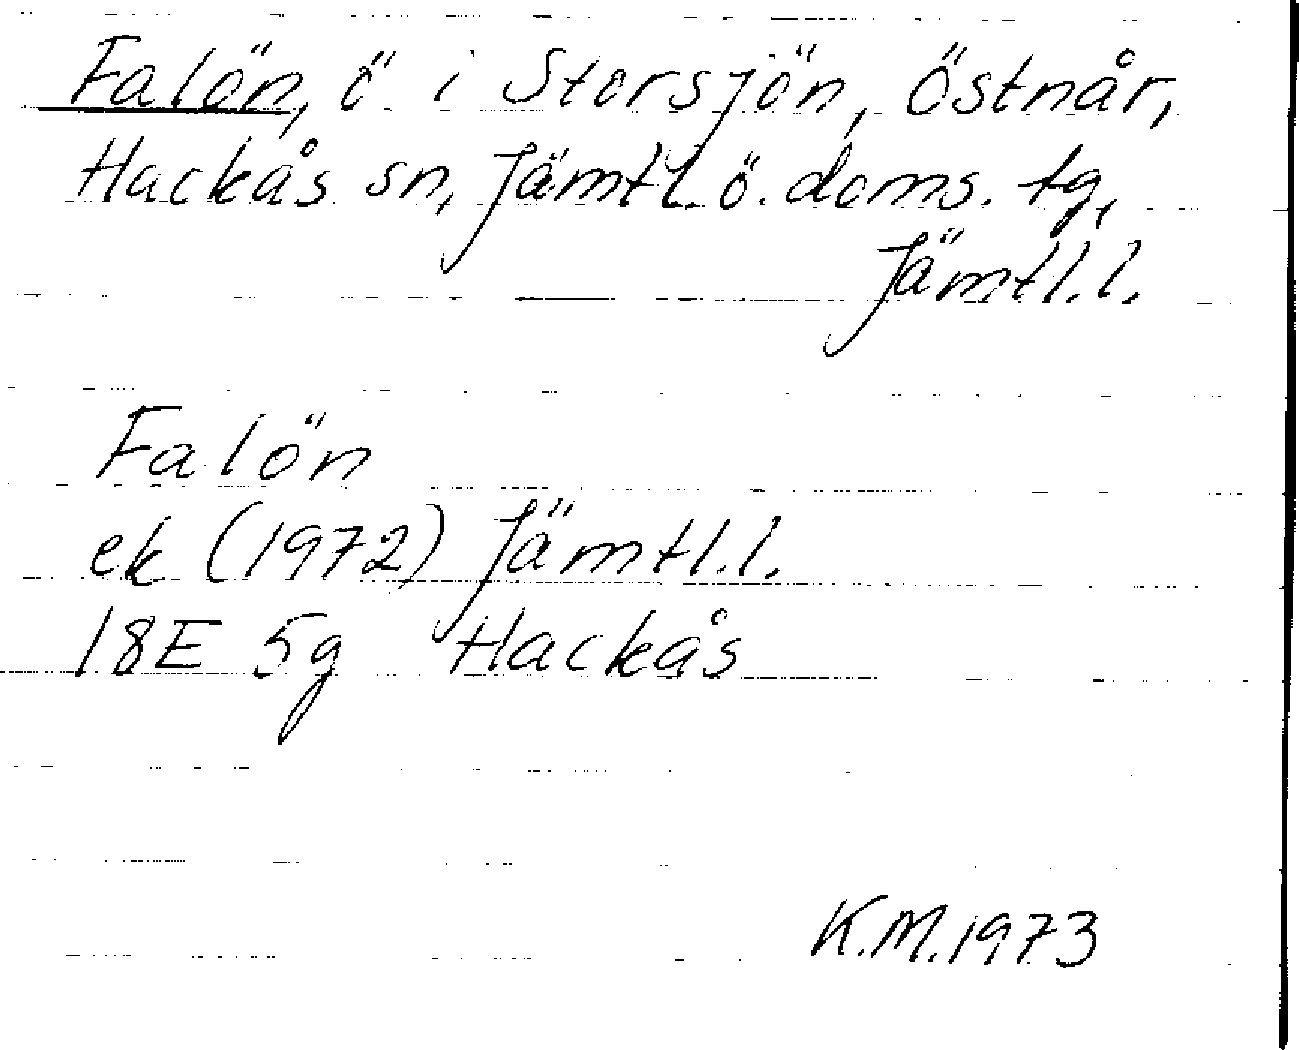 Falön, ö i Storsjön, Östnår,
Hackås sn, Jämtl. ö. doms. tg,
Jämtl. l.
Falön
ek (1972) Jämtl. l.
18E 5g Hackås
K.M. 1973